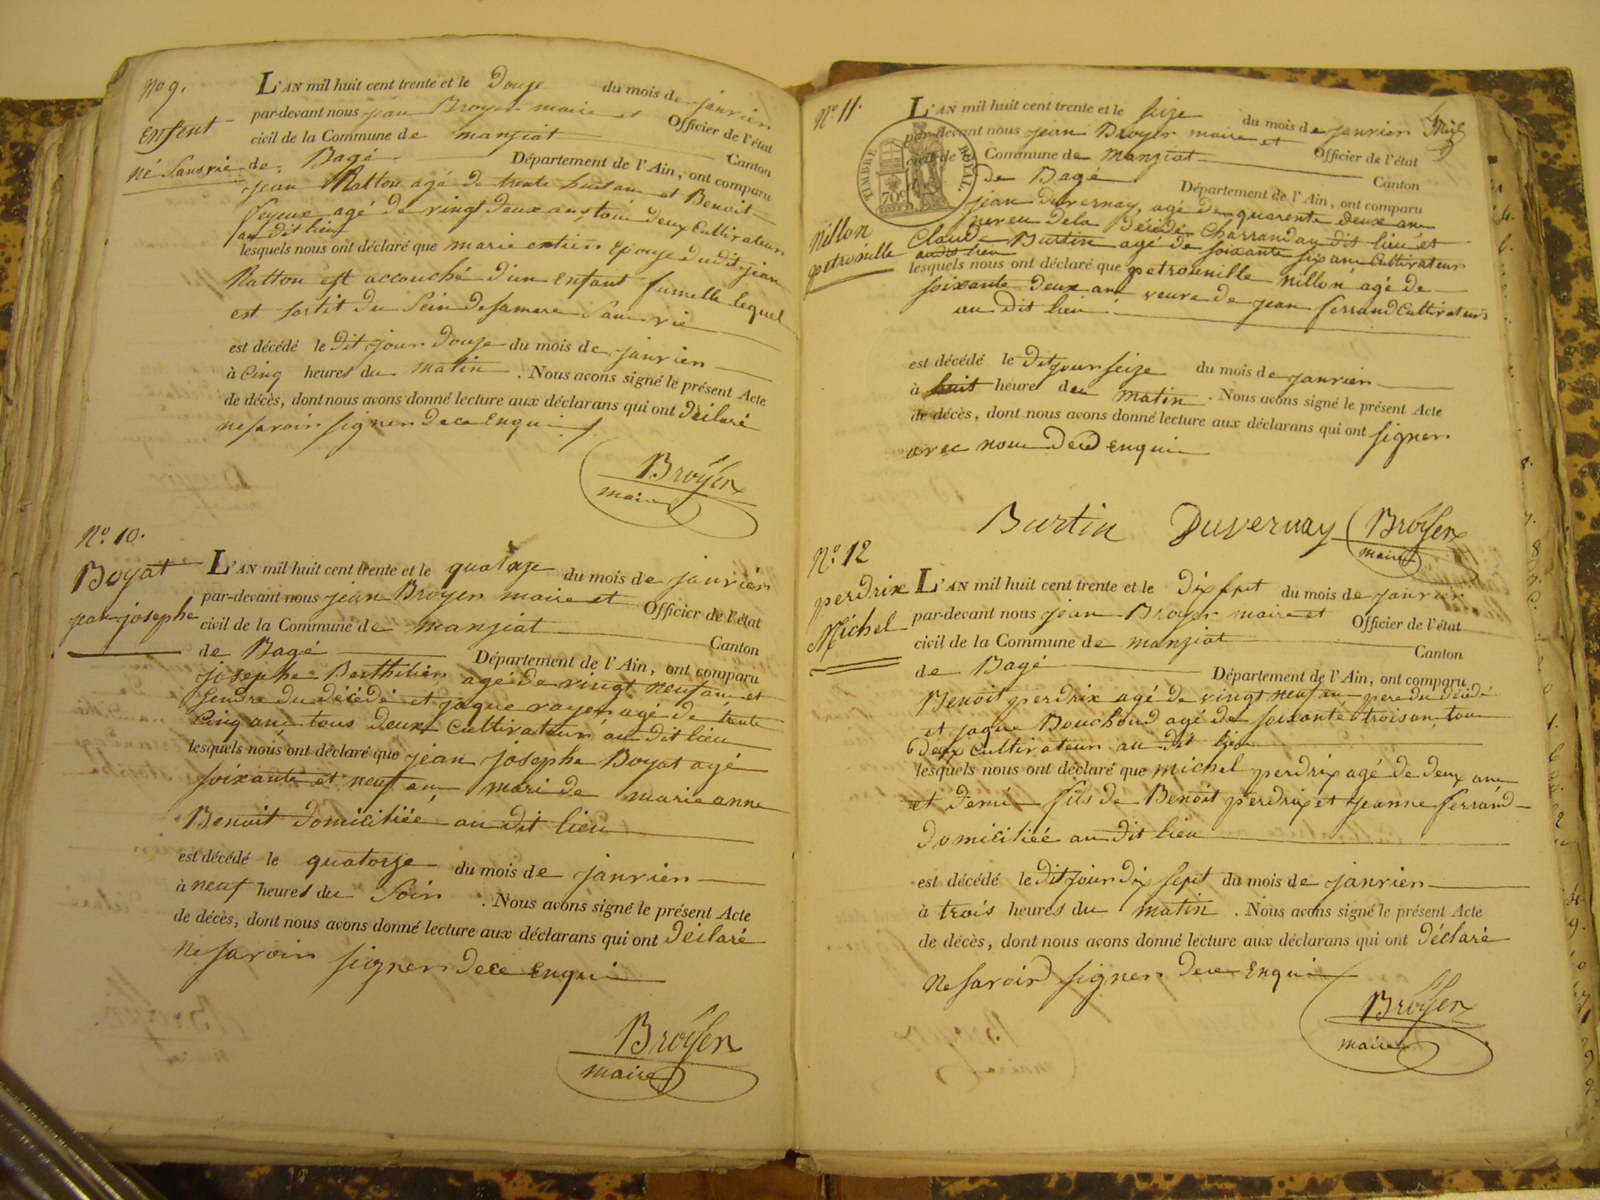 No 9.
Enfent
né Sans vie
L'AN mil huit cent trente et le Douze du mois de janvier
par-devant nous jean Broyer maire et Officier de l'état
civil de la Commune de manziat Canton
de Bagé Département de l'Ain, ont comparu
jean Ratton agé de trente huit an et Benoit
Feyeux agé de vingt deux ans tous deux Cultivateur
au dit lieu
lesquels nous ont déclaré que marie Epouse dudit jean
Ratton est accouché d'un Enfant fumelle lequel
est sortit du Sein de sa mere Sans vie
est décédé le dit jour Douze du mois de janvier
à Cinq heures du matin . Nous avons signé le présent Acte
de décès, dont nous avons donné lecture aux déclarans qui ont Déclaré
ne savoir signer de ce Enqui
Broyer
maire
No 10.
Boyat
jean josephe
L'AN mil huit cent trente et le quatorze du mois de janvier
par-devant nous jean Broyer maire et Officier de l'état
civil de la Commune de manziat Canton
de Bagé Département de l'Ain, ont comparu
josephe Berthilier agé de vingt neuf an et
Gendre du décédé et jaque rayer agé de trente
Cinq ans tous deux Cultivateur au dit lieu
lesquels nous ont déclaré que jean josephe Boyat agé
soixante et neuf an mari de marie anne
Benoit domiciliée au dit lieu
est décédé le quatorze du mois de janvier
à neuf heures du Soir . Nous avons signé le présent Acte
de décès, dont nous avons donné lecture aux déclarans qui ont Déclaré
ne savoir signer de ce Enqui
Broyer
maire
No 11.
Nillon
petronille
TIMBRE ROYAL
70c
L'AN mil huit cent trente et le Seize du mois de janvier
par-devant nous jean Broyer maire et Officier de l'état
civil de Commune de manziat Canton
de Bagé Département de l'Ain, ont comparu
jean Duvernay, agé de quarente deux an
neveu dela Décédé Charranday dit lieu et
Claude Burtin agé de soixante six an Cultivateur
au dit lieu
lesquels nous ont déclaré que petrounille Nillon agé de
soixante deux an veuve de jean ferrand Cultivateur
au dit lieu
est décédé le Ditjour seize du mois de janvier
à huit heures deu matin . Nous avons signé le présent Acte
de décès, dont nous avons donné lecture aux déclarans qui ont signer
avec nous De ce enqui
Burtin Duvernay Broyer
maire
No 12
perdrix
Michel
L'AN mil huit cent trente et le Dix sept du mois de janvier
par-devant nous jean Broyer maire et Officier de l'état
civil de la Commune de manziat Canton
de Bagé Département de l'Ain, ont comparu
Benoit perdrix agé de vingt neuf an pere du décédé
et jaque Bouchoud agé de soixante trois an, tous
deux Cultivateur au dit lieu
lesquels nous ont déclaré que Michel perdrix agé de deux ans
et Demi fils de Benoit perdrix et jeanne ferrand
Domiciliéé au dit lieu
est décédé le Dit jour Dix sept du mois de janvier
à trois heures du matin . Nous avons signé le présent Acte
de décès, dont nous avons donné lecture aux déclarans qui ont Déclaré
ne savoir signer de ce Enqui
Broyer
maire